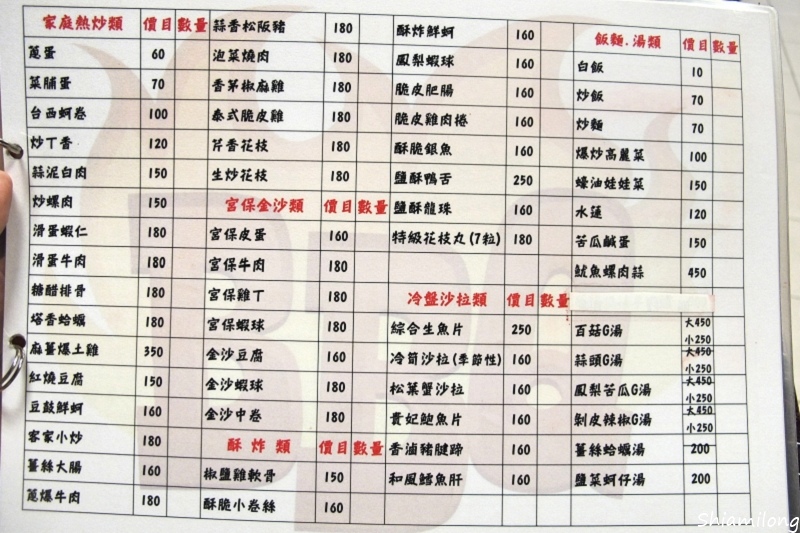 家庭熱炒類 價目 數量
蔥蛋 60
菜脯蛋 70
台西蚵卷 100
炒丁香 120
蒜泥白肉 150
炒螺肉 150
滑蛋蝦仁 180
滑蛋牛肉 180
糖醋排骨 180
塔香蛤蠣 180
麻薑爆土雞 350
紅燒豆腐 150
豆鼓鮮蚵 160
客家小炒 180
薑絲大腸 160
蔥爆牛肉 180
蒜香松阪豬 180
泡菜燒肉 180
香茅椒麻雞 180
泰式脆皮雞 180
芹香花枝 180
生炒花枝 180
宮保金沙類 價目 數量
宮保皮蛋 160
宮保牛肉 180
宮保雞丁 180
宮保蝦球 180
金沙豆腐 160
金沙蝦球 180
金沙中卷 180
酥炸類 價目 數量
椒鹽雞軟骨 150
酥脆小卷絲 160
酥炸鮮蚵 160
鳳梨蝦球 160
脆皮肥腸 160
脆皮雞肉捲 160
酥脆銀魚 160
鹽酥鴨舌 250
鹽酥龍珠 160
特級花枝丸(7粒) 180
冷盤沙拉類 價目 數量
綜合生魚片 250
冷筍沙拉(季節性) 160
松葉蟹沙拉 160
貴妃鮑魚片 160
香滷豬腱蹄 160
和風鱈魚肝 160
飯麵.湯類 價目 數量
白飯 10
炒飯 70
炒麵 70
爆炒高麗菜 100
蠔油娃娃菜 150
水蓮 120
苦瓜鹹蛋 150
魷魚螺肉蒜 450
百菇G湯 大450 小250
蒜頭G湯 大450 小250
鳳梨苦瓜G湯 大450 小250
剝皮辣椒G湯 大450 小250
薑絲蛤蠣湯 200
鹽菜蚵仔湯 200
Shiamilong